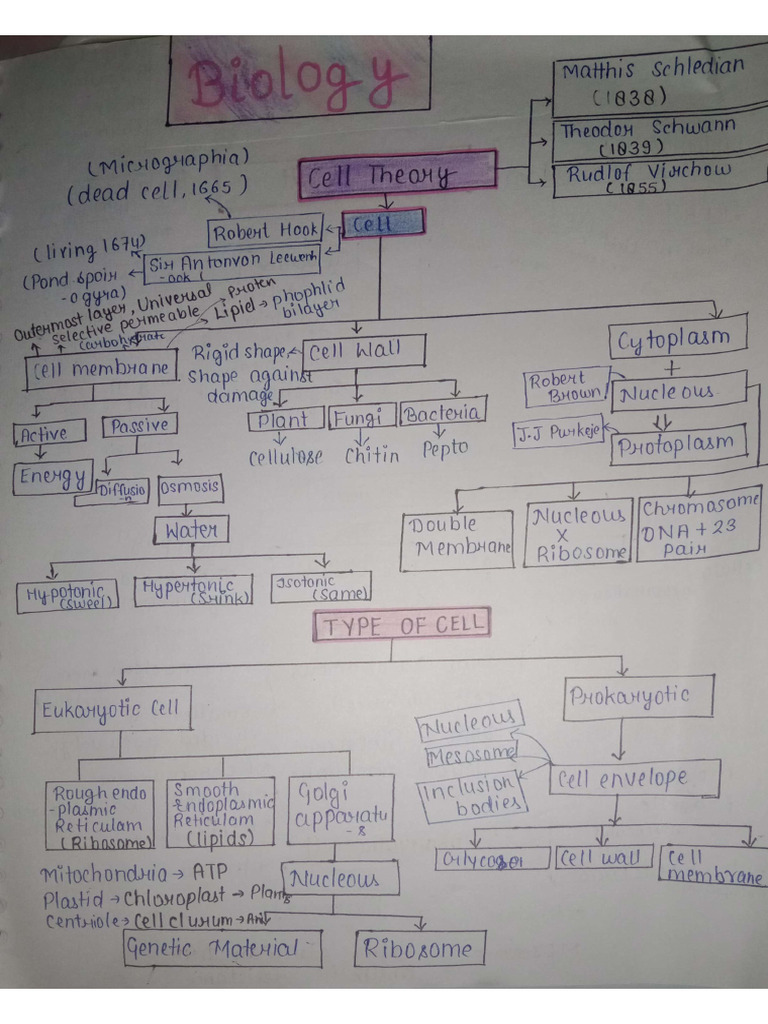 Biology
Matthis Schledian
(1838)
Theodor Schwann
(1839)
Rudlof Virchow
(1855)
Cell Theory
(Micrographia)
(dead cell, 1665)
Robert Hook
Cell
(living 1674)
Sir Antonvon Leewenh
-ook
(Pond spoir
-ogyra)
Outermost layer, Universal
selective permeable
Proten
Lipid → phophlid
bilayer
Carbohydrate
Cell membrane
Rigid shape
Shape against
damage
Cell Wall
Cytoplasm
+
Robert
Brown
Nucleous
J.J Purkeje
Protoplasm
Active
Passive
Plant
Fungi
Bacteria
Cellulose
Chitin
Pepto
Energy
Diffusio
-n
Osmosis
Water
Double
Membrane
Nucleous
X
Ribosome
Chromosome
DNA + 23
pair
Hypotonic
(sweel)
Hypertonic
(Srink)
Isotonic
(same)
TYPE OF CELL
Eukaryotic Cell
Prokaryotic
Nucleous
Mesosome
Inclusion
bodies
Cell envelope
Rough endo
-plasmic
Reticulam
(Ribosome)
Smooth
Endoplasmic
Reticulam
(lipids)
Golgi
apparatu
-s
Cell wall
Cell
membrane
Mitochondria → ATP
Plastid → Chloroplast → Plants
Centriole → Cell clurum →
Nucleous
Genetic Material
Ribosome